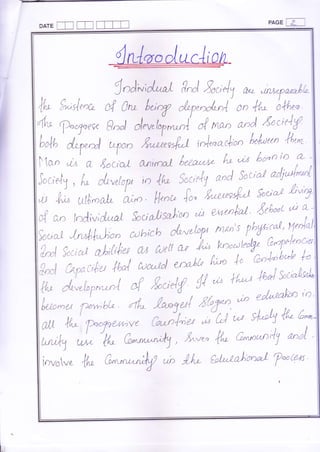 DATE PAGE 2
Introduction
Individual and Society are inseparable
the Existence of One being dependent on the other
The Progress And development of man and Society
both depend upon Successful interaction between them.
Man is a Social animal because he is born in a
Society, he develops in the Society and Social adjustment
is his ultimate aim. Hence for Successful Social living
of an Individual Socialisation is essential. School is a
Social Institution which develops men's physical, Mental
and Social abilities as well as his knowledge Competencies
and Capacities that would enable him to Contribute to
the development of Society. It is thus that Socialisation
becomes possible. The Largest Slogan in education in
all the progressive Countries is let us Study the Comm-
unity use the Community, Serve the Community and
involve the Community in the Educational Process.